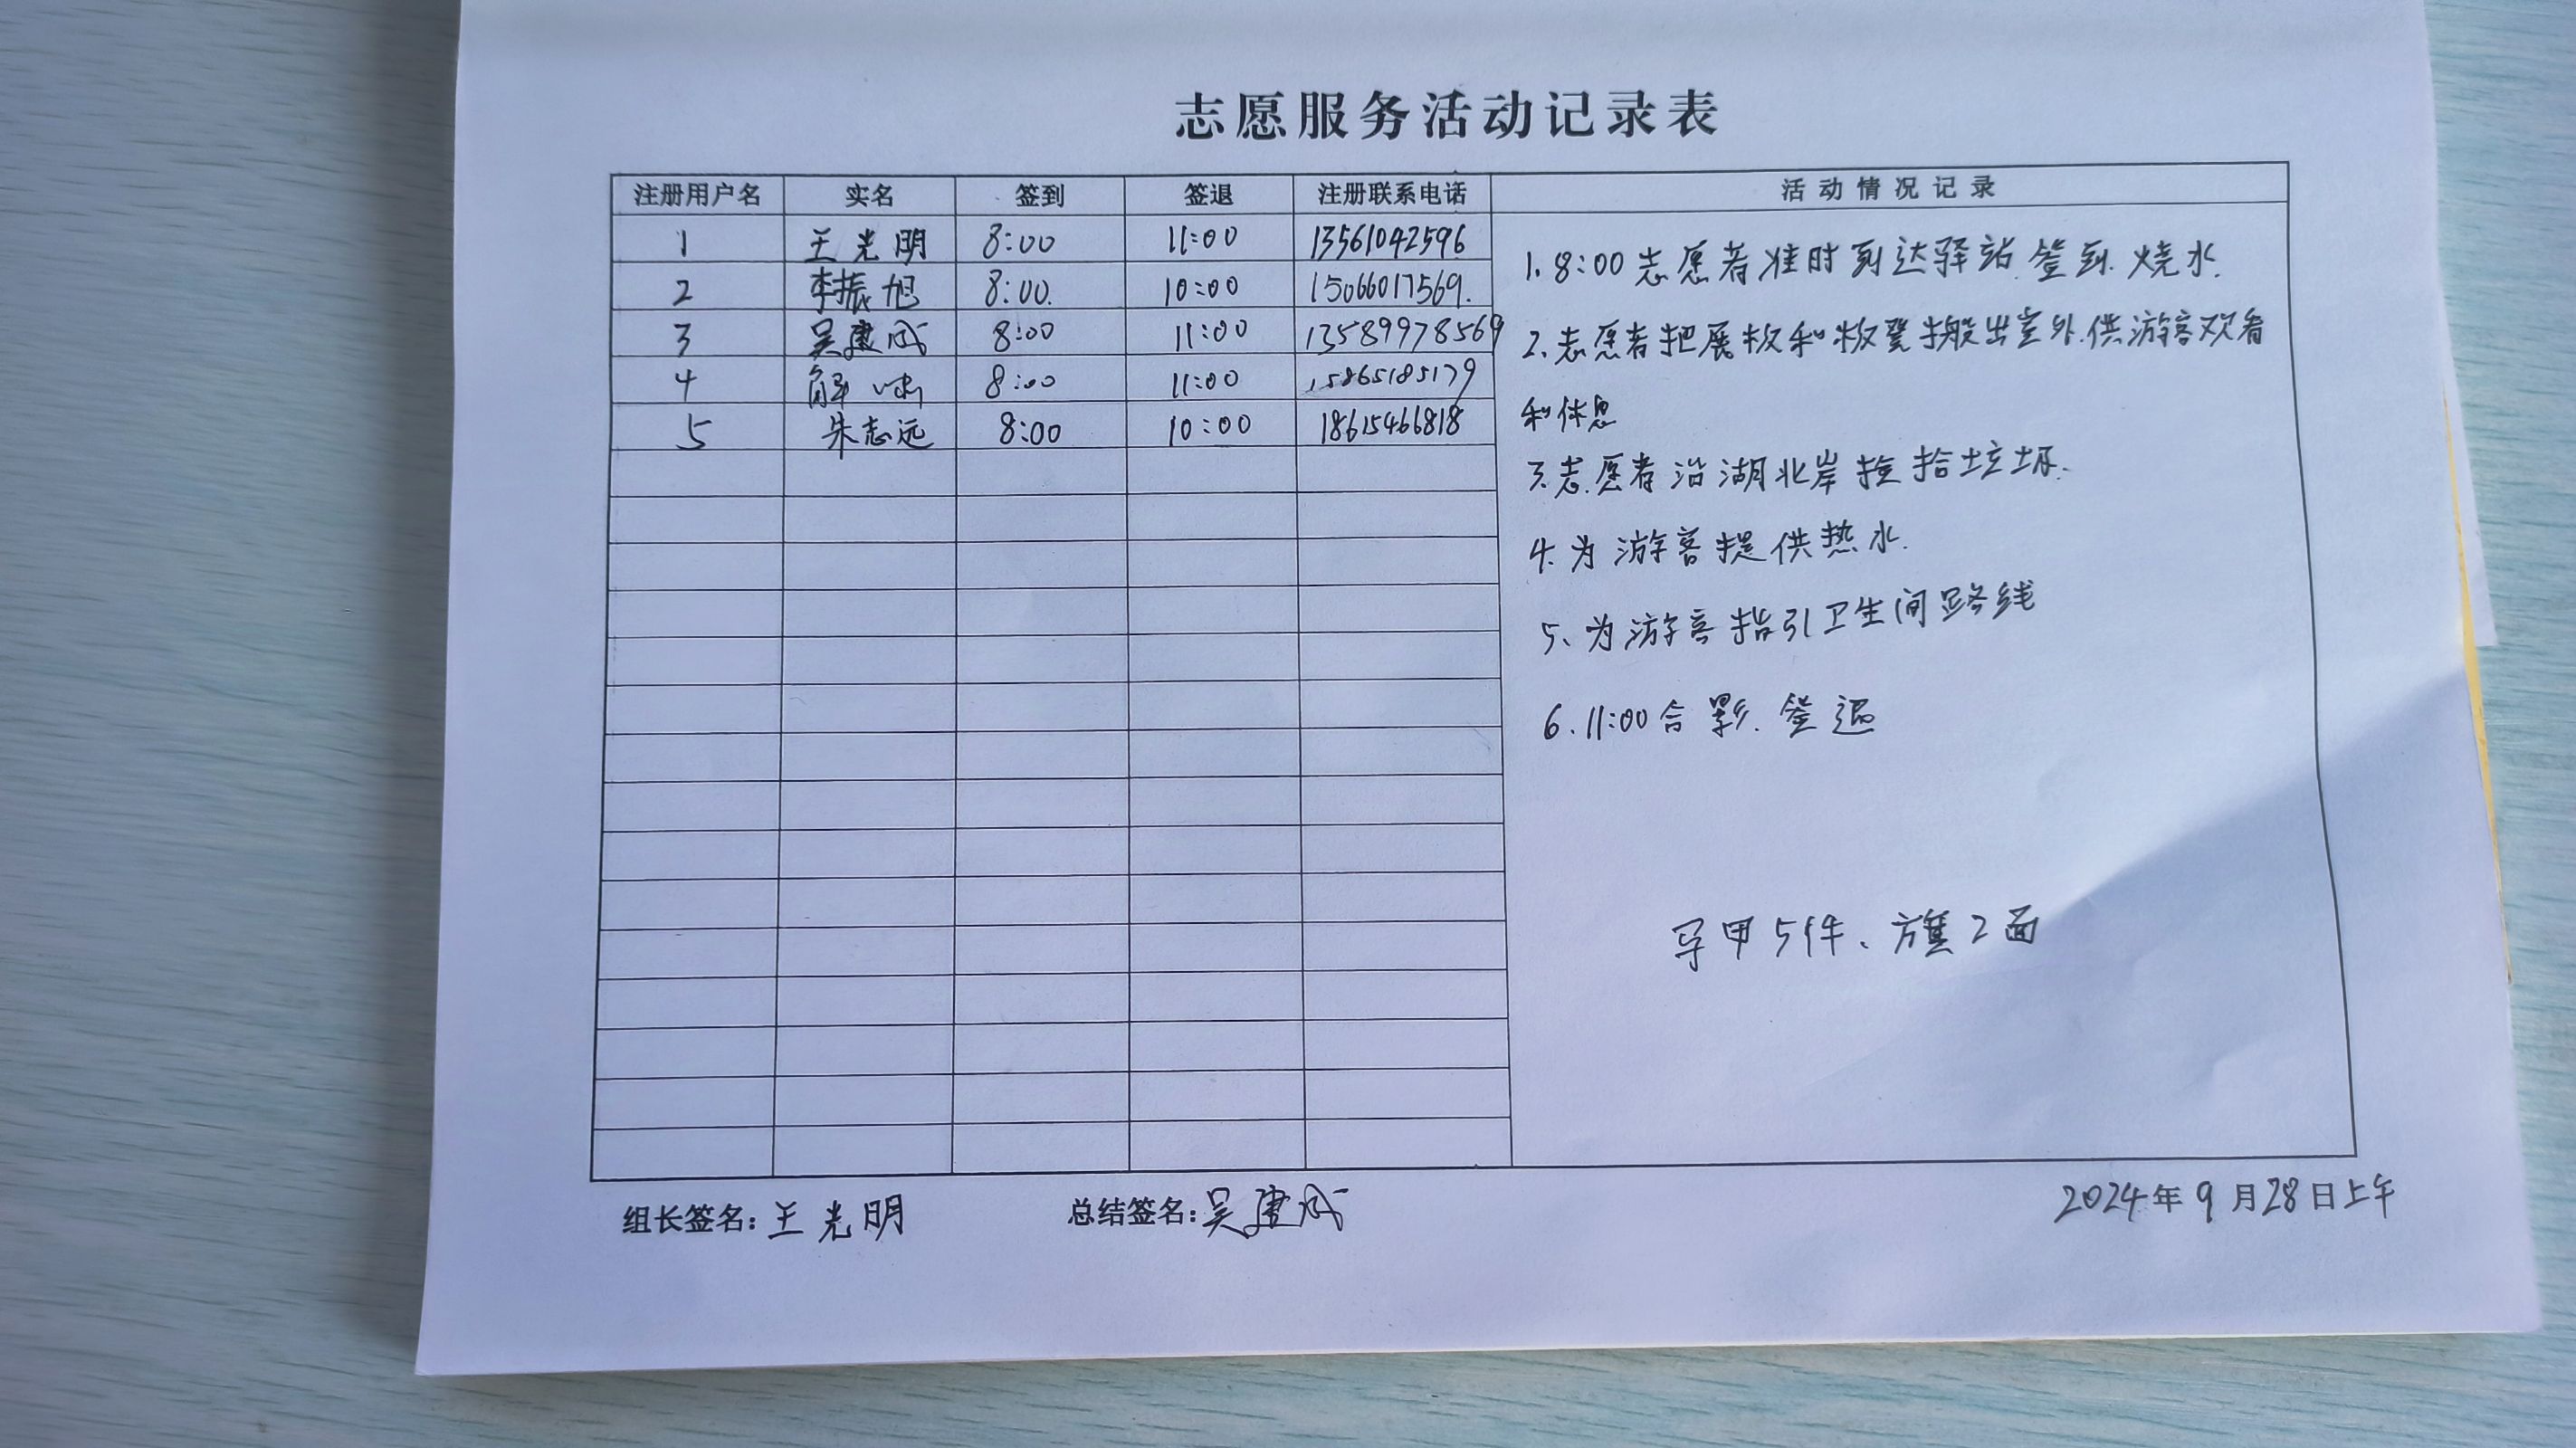 志愿服务活动记录表
注册用户名 实名 签到 签退 注册联系电话 活动情况记录
1 王光明 8:00 11:00 13561042596
2 李振旭 8:00. 10:00 15066017569.
3 吴建成 8:00 11:00 13589978569
4 解 8:00 11:00 15865185179
5 朱志远 8:00 10:00 18615466818
1. 8:00志愿者准时到达驿站.签到.烧水.
2.志愿者把展板和板凳搬出室外.供游客观看
和休息
3.志愿者沿湖北岸捡拾垃圾.
4.为游客提供热水.
5、为游客指引卫生间路线
6.11:00合影.签退
马甲5件、旗2面
组长签名:王光明 总结签名:吴建成 2024年9月28日上午